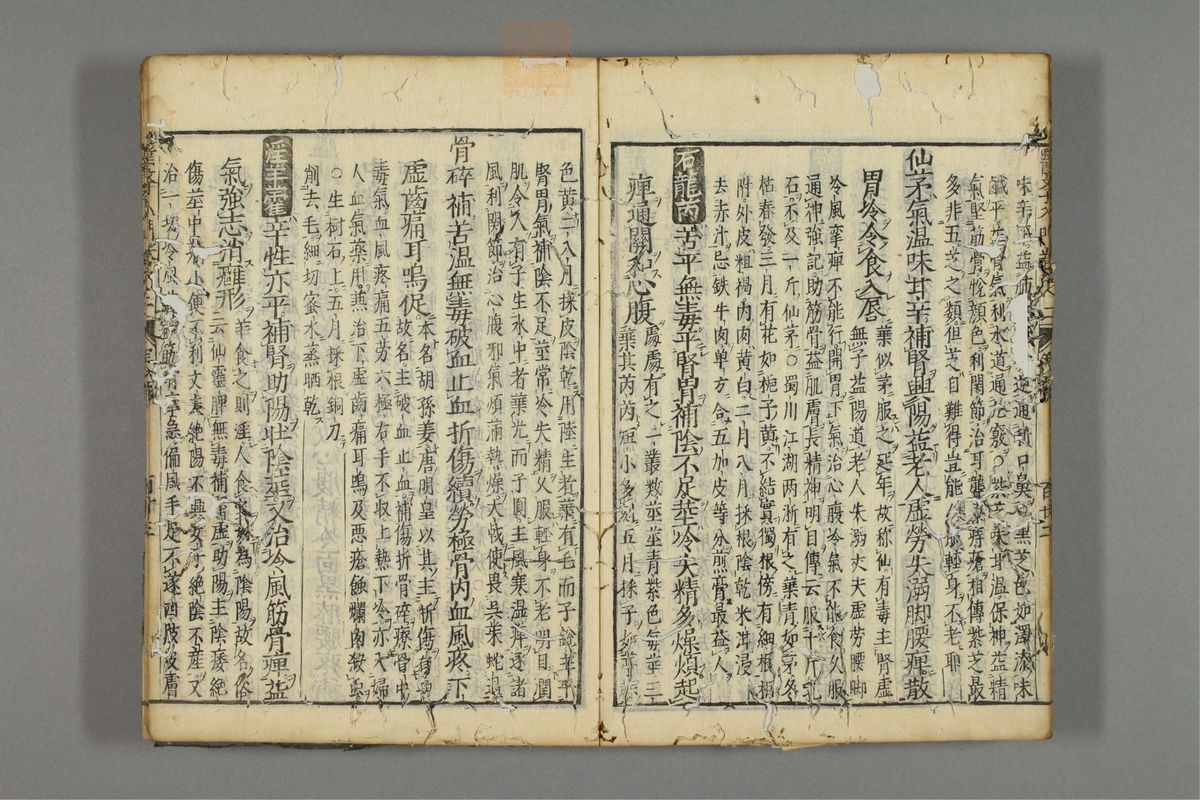 味辛平益肺 通鼻口 黑芝色如澤漆味
鹹平益腎氣利水道通九竅○紫芝味甘温保神益精
氣堅筋骨悅顏色利關節治耳聾 痔瘡相傳紫芝最
多非五芝之類但芝自難得豈能 服輕身不老耶
仙茅氣温味甘辛補腎興陽益老人虛勞失溺脚腰痺散
胃冷令食入唇 葉似茅服之延年故称仙有毒主腎虛
無子益陽道老人失溺丈夫虛勞腰脚
冷風攣痺不能行開胃下氣治心腹冷氣不能食久服
通神強記助筋骨益肌膚長精神明目傳云服十斤乳
石不及一斤仙茅○蜀川江湖両浙有之葉青如茅冬
枯春發三月有花如梔子黄不結實獨根傍有細根相
附外皮粗褐内肉黄白二月八月採根陰乾米泔浸
去赤汁忌鉄牛肉单方合五加皮等分煎膏最益人
石龍芮苦平無毒平腎胃補陰不足莖冷失精多燥煩起
痺通關和心腹 處處有之一叢数莖莖青紫色每莖三
葉其芮芮短小多刻五月採子
色黄二八月採皮陰乾用陸生者葉有毛而子銳主平
腎胃氣補陰不足莖常冷失精久服輕身不老明目潤
肌令人有子生水中者葉光而子圓主風寒温痺逐諸
風利關節治心腹邪氣煩滿熱燥大戟使畏吳茱蛇退
骨碎補苦温無毒破血止血折傷續勞極骨内血風疼下
虛齒痛耳鳴促 本名胡孫姜唐明皇以其主折傷
故名主破血止血補傷折骨碎療骨中
毒氣血風疼痛五労六極右手不収上熱下冷亦入婦
人血氣藥用兼治下虛齒痛耳鳴及悪瘡蝕爛肉殺虫
○生树石上五月採根銅刀
削去毛細切蜜水蒸晒乾
淫羊藿辛性亦平補腎助陽壯陰莖又治冷風筋骨痺益
氣強志消癰形 羊食之則淫人食 為陰陽故名俗
云仙丈靈脾無毒補腎虛助陽主陰痿絶
傷莖中 小便不利丈夫絶陽不興女子絶陰不產又
治一切冷風 筋骨挛急偏風手足不遂四肢皮膚